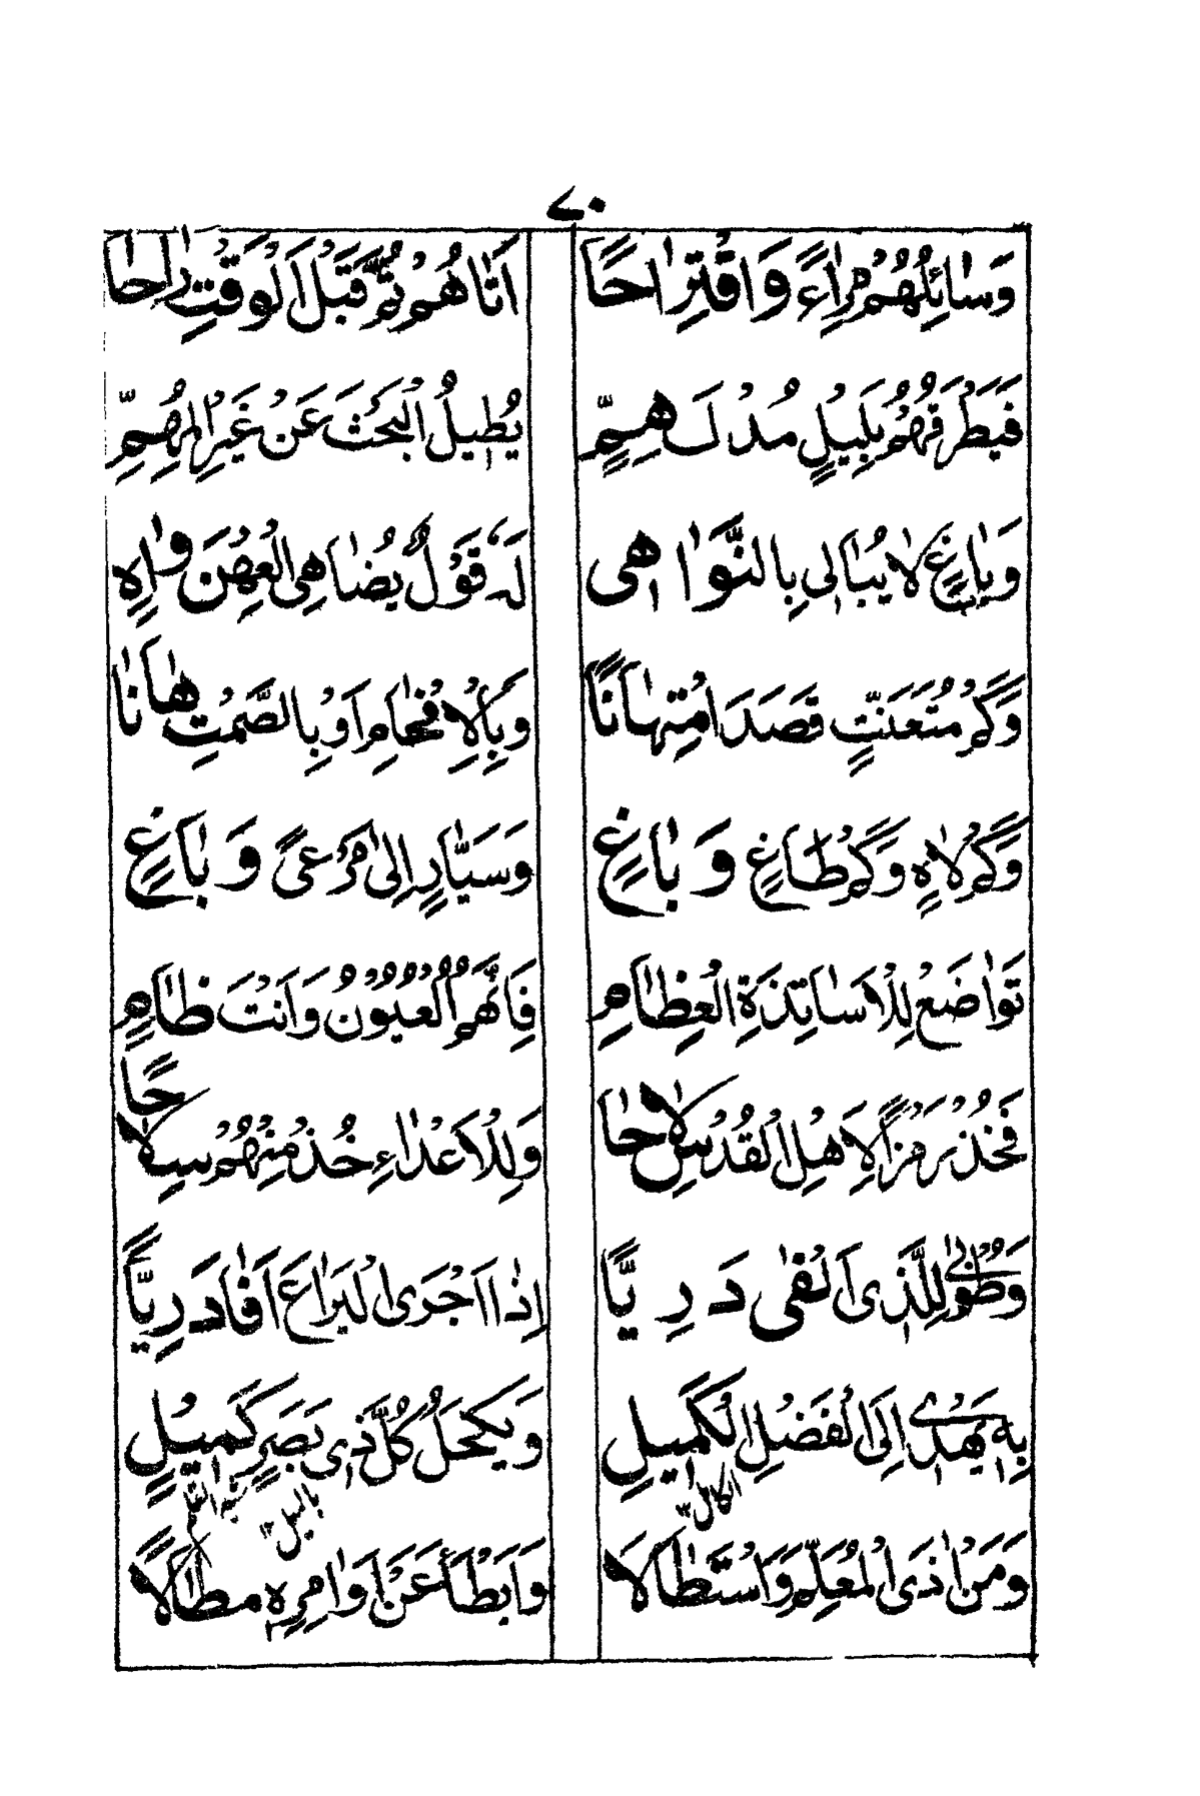 ٧٠
وَسَائِلُهُمْ مِرَاءً وَاقْتِرَاحًا اَتَاهُمْ ثُمَّ قَبْلَ الْوَقْتِ رَاحَا
فَيَطْرُقُهُمْ بِلَيْلٍ مُدْلَهِمٍّ يُطِيلُ الْبَحْثَ عَنْ غَيْرِ الْمُهِمِّ
وَبَاغٍ لَا يُبَالِي بِالنَّوَاهِي لَهُ قَوْلٌ يُضَاهِي الْعِهْنَ وَاهِ
وَكَمْ مُتَعَنِّتٍ قَصَدَ امْتِهَانًا وَبِالْاِفْحَامِ اَوْ بِالصَّمْتِ هَانَا
وَكَمْ لَاهٍ وَكَمْ طَاغٍ وَبَاغٍ وَسَيَّارٍ اِلَى مَرْعًى وَبَاغٍ
تَوَاضَعْ لِلْاَسَاتِذَةِ الْعِظَامِ فَاِنَّهُمُ الْعُيُوْنُ وَاَنْتَ ظَامٍ
فَخُذْ رَمْزًا لِاَهْلِ الْقُدْسِ لَاحَا وَلِلْاَعْدَاءِ خُذْ مِنْهُمْ سِلَاحًا
وَطُوْبٰى لِلَّذِى اَلْفٰى دَرِيًّا اِذَا اَجْرَى الْيَرَاعَ اَفَادَ رِيًّا
بِهِ يَهْدِى اِلَى الْفَضْلِ الْكَمِيلِ وَيَكْحَلُ كُلَّ ذِى بَصَرٍ كَمِيْلٍ
الكامل بالميل
وَمَنْ اٰذَى الْمُعَلِّمَ وَاسْتَطَالَا وَاَبْطَأَ عَنْ اَوَامِرِهِ مِطَالًا